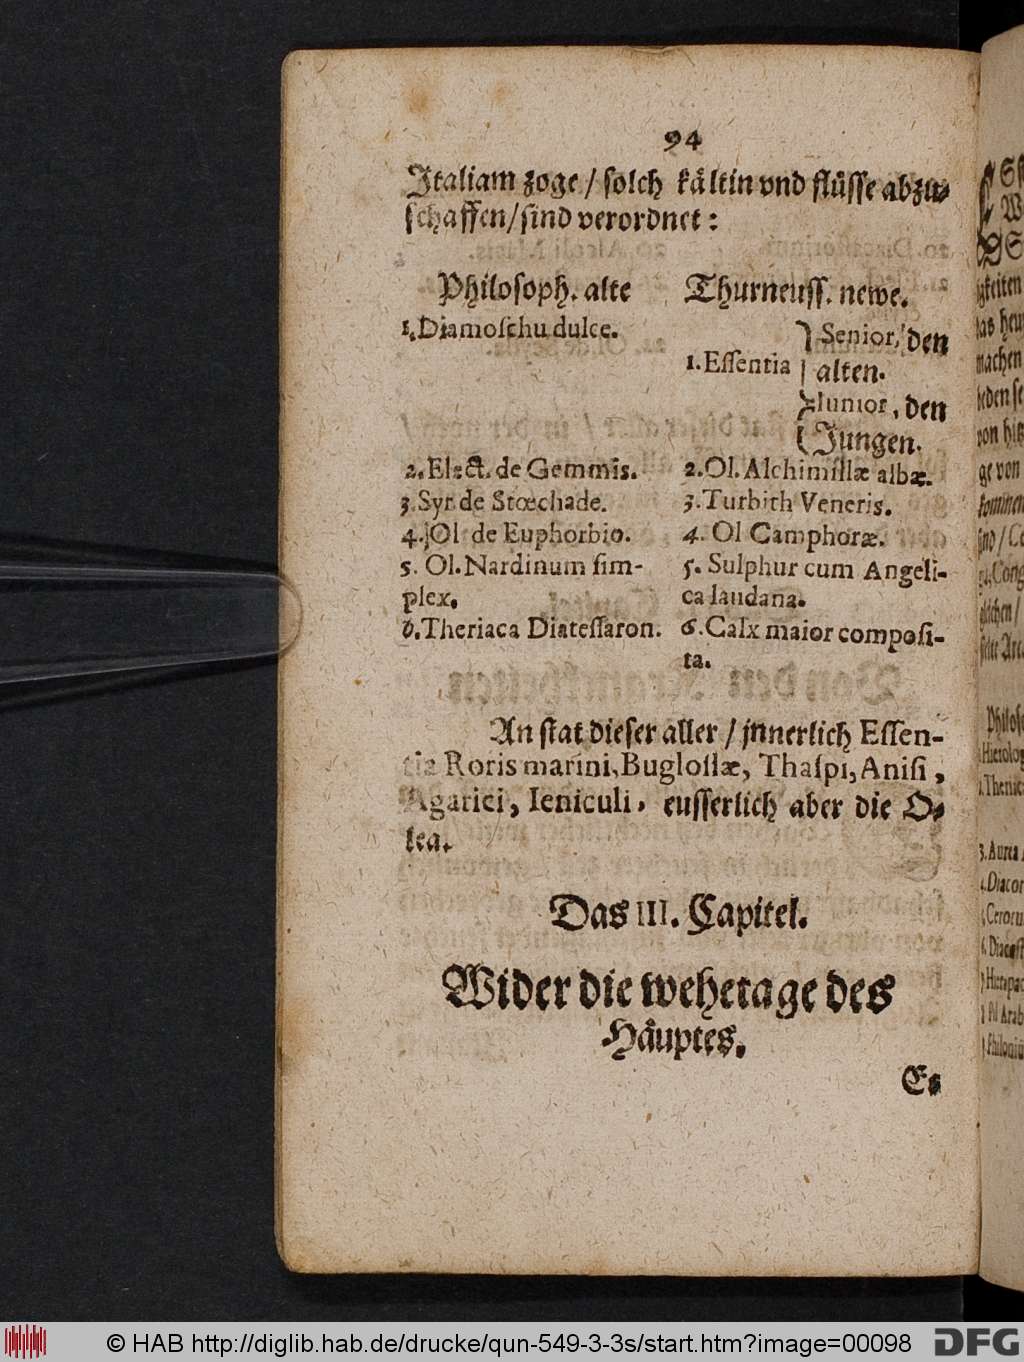 94
Italiam zoge / solch kältin vnd flüsse abzu-
schaffen / sind verordnet:
Philosoph. alte
1. Diamoschu dulce.
2. Elect. de Gemmis.
3. Syr. de Stœchade.
4. Ol de Euphorbio.
5. Ol. Nardinum sim-
plex.
6. Theriaca Diatessaron.
Thurneuss. newe.
1. Essentia
Senior, den
alten.
Iunior, den
Jungen.
2. Ol. Alchimillæ albæ.
3. Turbith Veneris.
4. Ol Camphoræ.
5. Sulphur cum Angeli-
ca laudana.
6. Calx maior composi-
ta.
An stat dieser aller / jnnerlich Essen-
tia Roris marini, Buglossæ, Thaspi, Anisi,
Agarici, Ieniculi, eusserlich aber die O-
lea.
Das III. Capitel.
Wider die wehetage des
Häuptes.
Es
© HAB http://diglib.hab.de/drucke/qun-549-3-3s/start.htm?image=00098
DFG